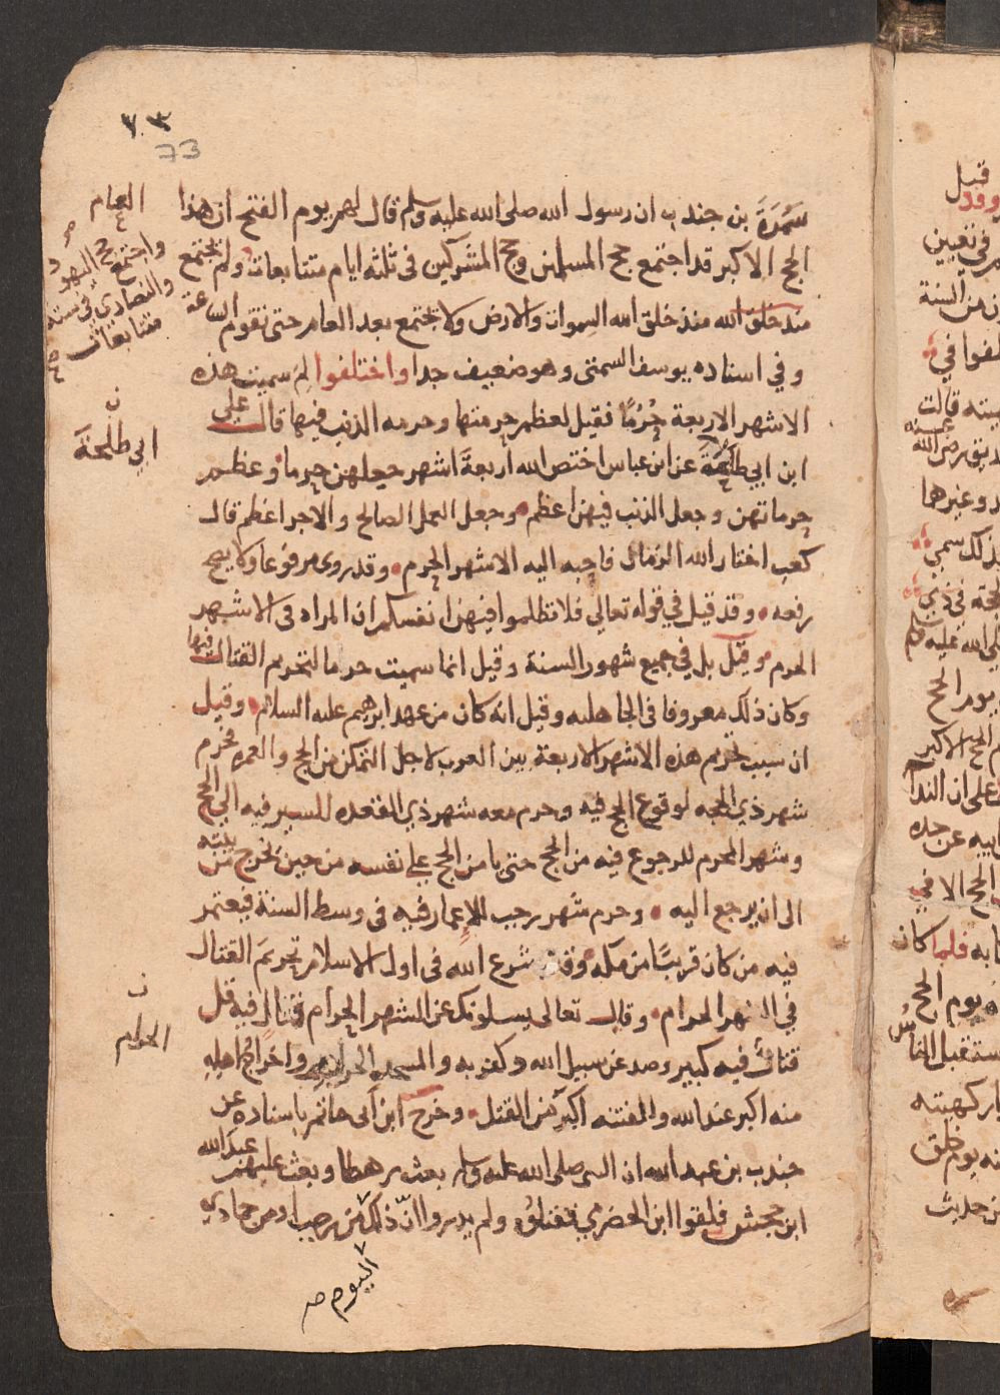 ٧٣
73
سَمُرَةَ بن جندب ان رسول الله صلى الله عليه وسلم قال لهم يوم الفتح ان هذا
العام
الحج الاكبر قد اجتمع حج المسلمين وحج المشركين في ثلثه ايام متتابعات ولم يجتمع
واجتمع حج اليهود
والنصارى في ستة
متتابعات
صح
منذ خلق الله منذ خلق الله السموات والارض ولا يجتمع بعد العام حتى تقوم الساعة
وفي اسناده يوسف السمتى وهو ضعيف جدا واختلفوا لم سميت هذه
الاشهر الاربعة حُرُمًا فقيل لعظم حرمتها وحرمه الذنب فيها قال على
ن
ابي طلحة
ابن ابي طلحة عن ابن عباس اختص الله اربعة اشهر جعلهن حرما وعظم
حرماتهن وجعل الذنب فيهن اعظم وجعل العمل الصالح والاجر اعظم قال
كعب اختار الله الزمان فاحبه اليه الاشهر الحرم وقد روى مرفوعا ولا يصح
رفعه وقد قيل في قوله تعالي فلا تظلموا فيهن انفسكم ان المراد فى الاشهر
الحرم وقيل بل في جميع شهور السنة وقيل انما سميت حرما لتحريم القتال فيها
وكان ذلك معروفا فى الجاهليه وقيل انه كان من عهد ابرهيم عليه السلام وقيل
ان سبب تحريم هذه الاشهر الاربعة بين العرب لاجل التمكن من الحج والعمره فحرم
شهر ذي الحجه لوقوع الحج فيه وحرم معه شهر ذي القعده للسير فيه الي الحج
وشهر المحرم للرجوع فيه من الحج حتى يامن الحج على نفسه من حين يخرج من بيته
الى ان يرجع اليه وحرم شهر رجب للإعمار فيه فى وسط السنة فيعتمر
فيه من كان قريبًا من مكه وقد شرع الله فى اول الاسلام تحريمَ القتال
ن
الحرام
في الشهر الحرام وقال تعالى يسلونك عن الشهر الحرام قتال فيه قل
قتال فيه كبير وصد عن سبيل الله وكفر به والمسجد الحرام واخراج اهله
منه اكبر عند الله والفتنه اكبر من القتل وخرج ابن ابى حاتم باسناده عن
جندب بن عبد الله ان النبى صلى الله عليه وسلم بعث رهطا وبعث عليهم عبد الله
ابن جحش فلقوا ابن الحضرمي فقتلوه ولم يدروا انّ ذلك من رجب او من جمادي
اليوم صح